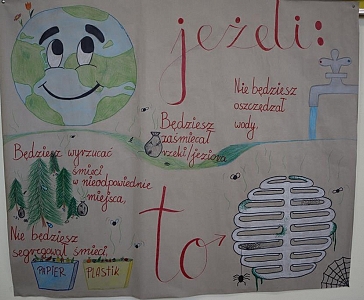 jeżeli:
Nie będziesz
oszczędzał
wody,
Będziesz
zaśmiecał
rzeki/jeziora
Będziesz wyrzucać
śmieci
w nieodpowiednie
miejsca,
Nie będziesz
segregował śmieci,
PAPIER
PLASTIK
to